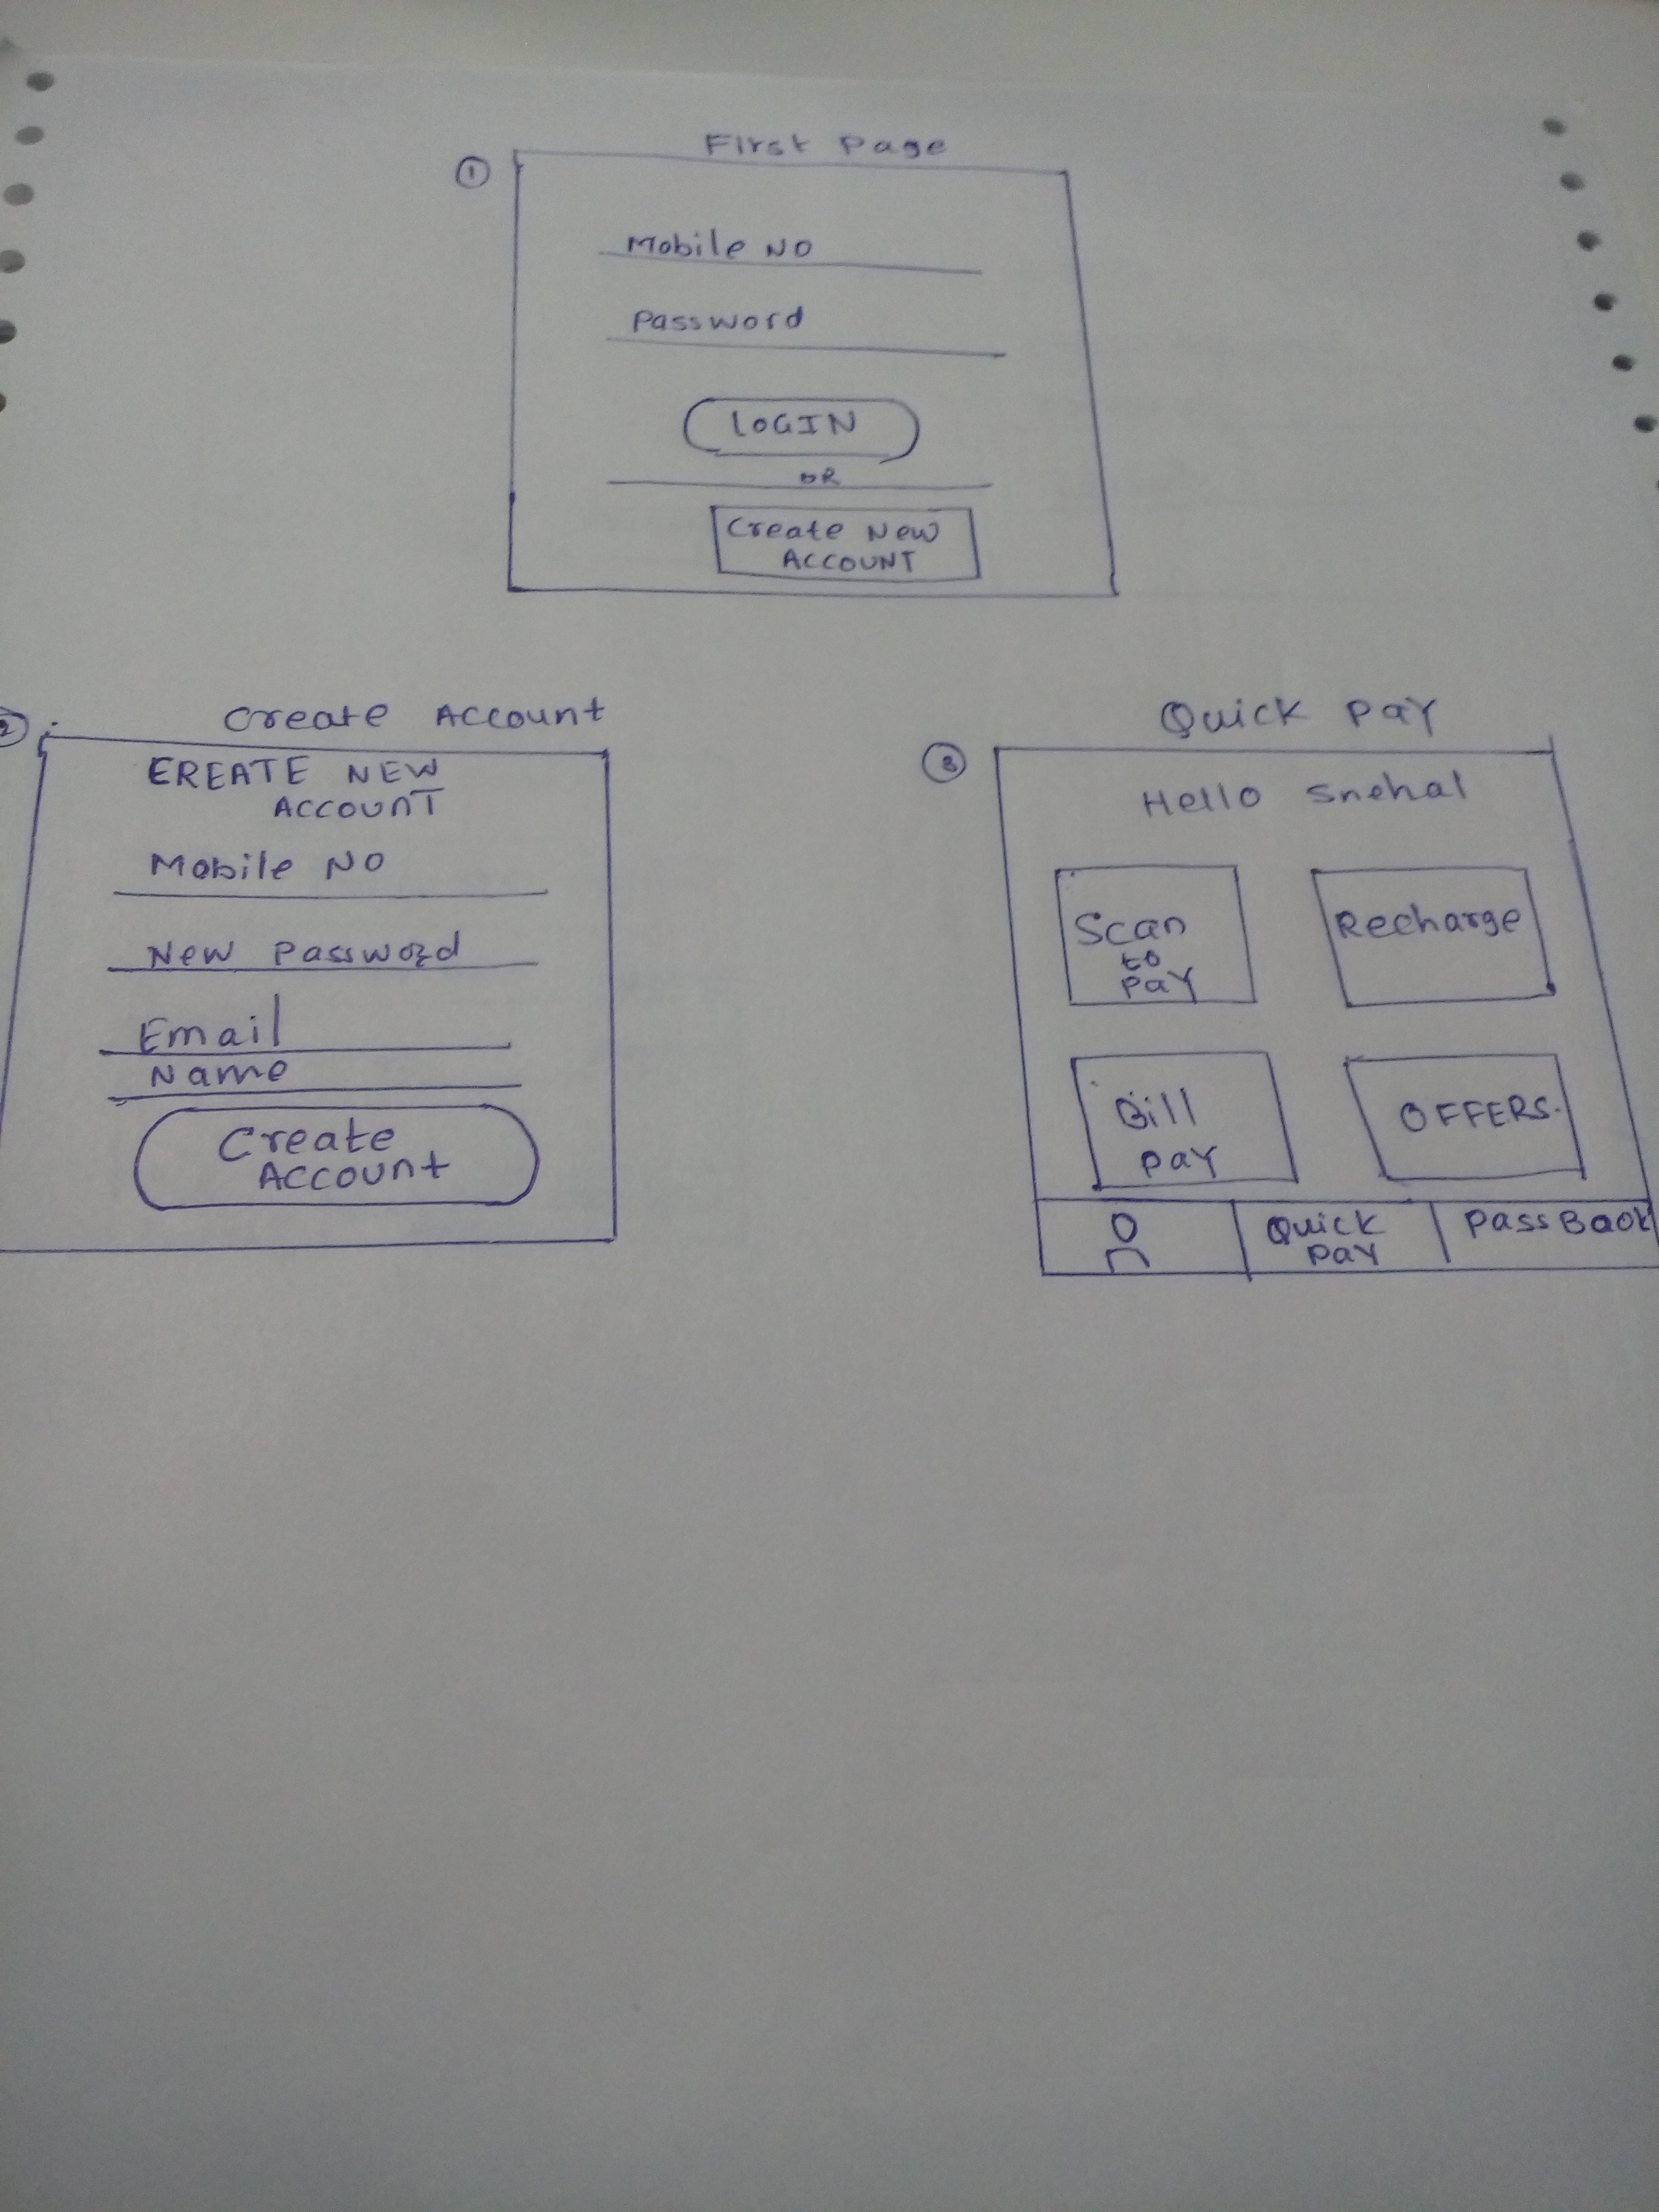 First Page
1
Mobile NO
Password
LOGIN
OR
Create New
ACCOUNT
2
Create Account
EREATE NEW
ACCOUNT
Mobile NO
New Password
Email
Name
Create
Account
Quick Pay
3
Hello Snehal
Scan
to
Pay
Recharge
Bill
Pay
OFFERS.
Quick
Pay
PassBook